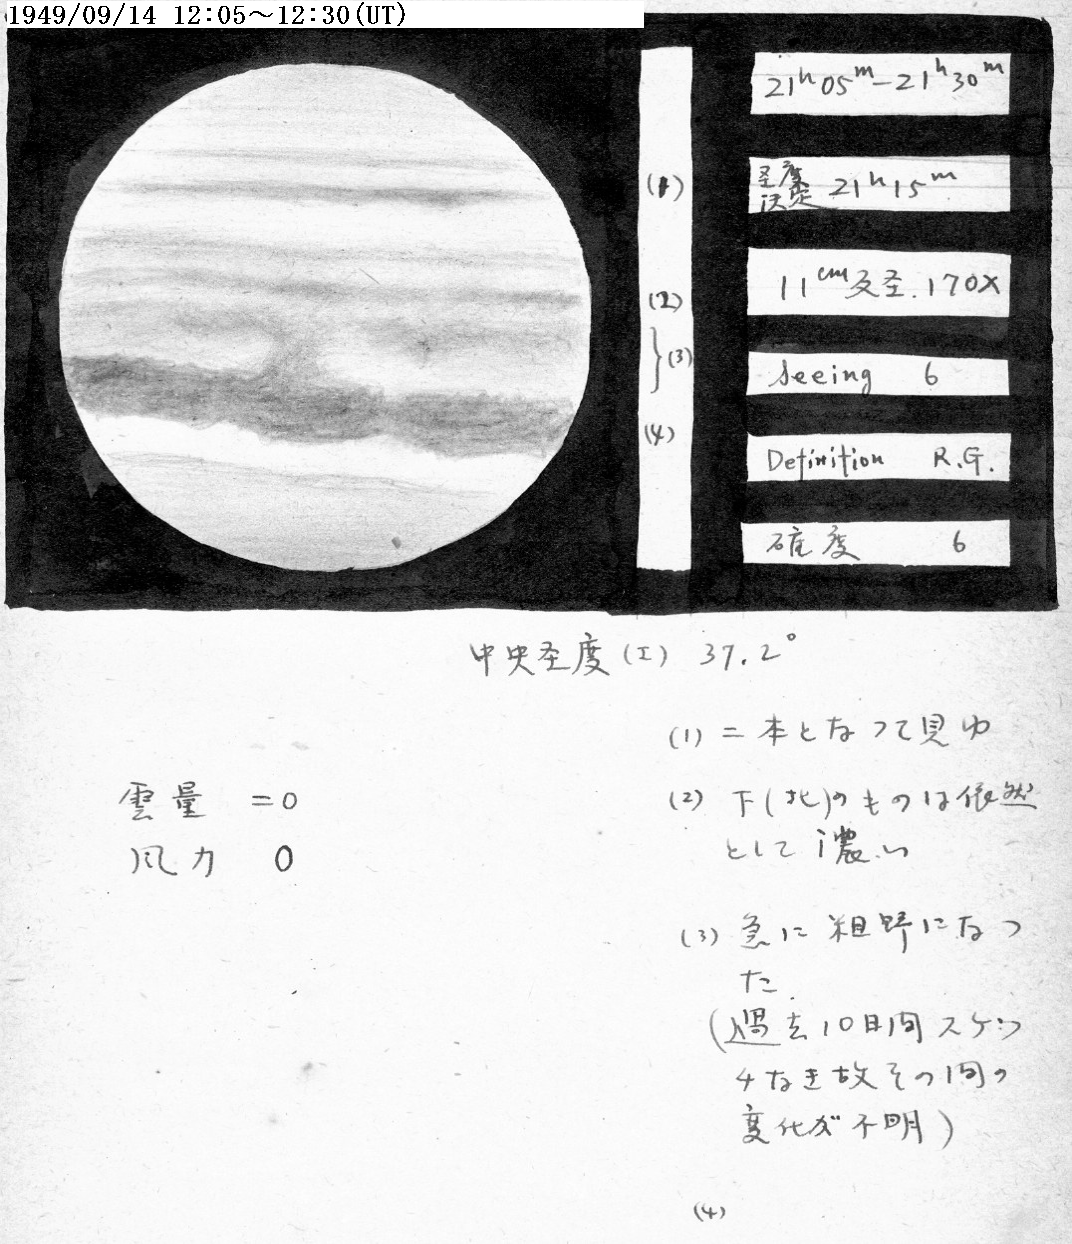 1949/09/14 12:05～12:30(UT)
21h05m－21h30m
圣度決定 21h15m
11cm反圣.170X
(1)
(2)
(3)
(4)
Seeing 6
Definition R.G.
確度 6
中央圣度(I) 37.2°
雲量 =0
風力 0
(1) 二本となつて見ゆ
(2) 下(北)のものは依然
として濃い
(3) 急に粗野になつ
た.
(過去10日間スケッ
チなき故その間の
変化が不明)
(4)